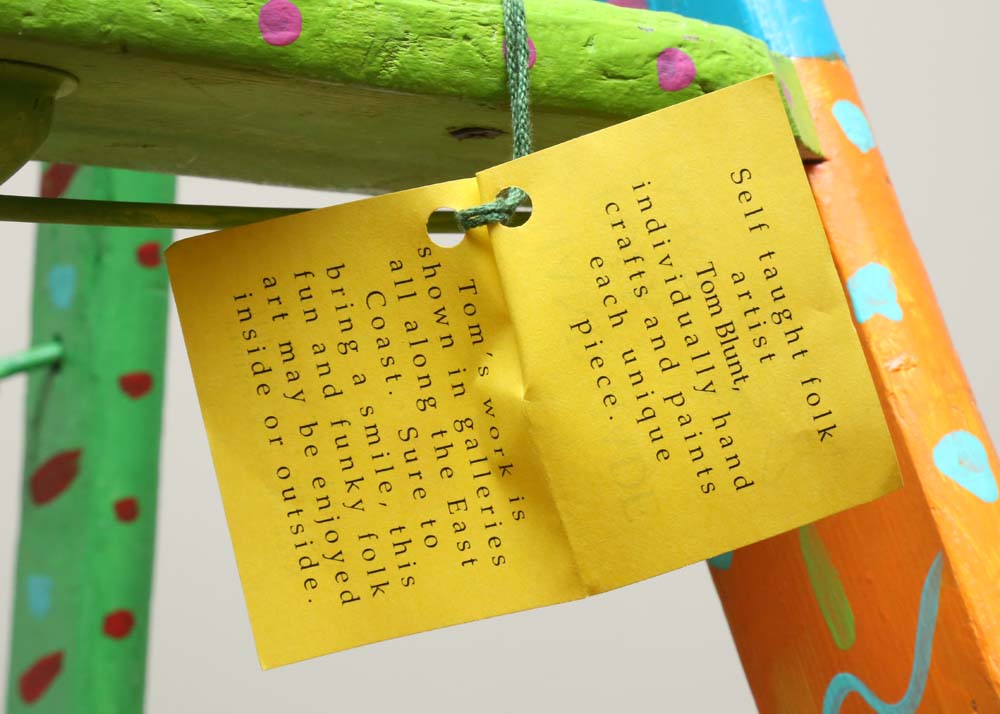 Self taught folk
artist
Tom Blunt,
individually hand
crafts and paints
each unique
piece.
Tom's work is
shown in galleries
all along the East
Coast. Sure to
bring a smile, this
fun and funky folk
art may be enjoyed
inside or outside.